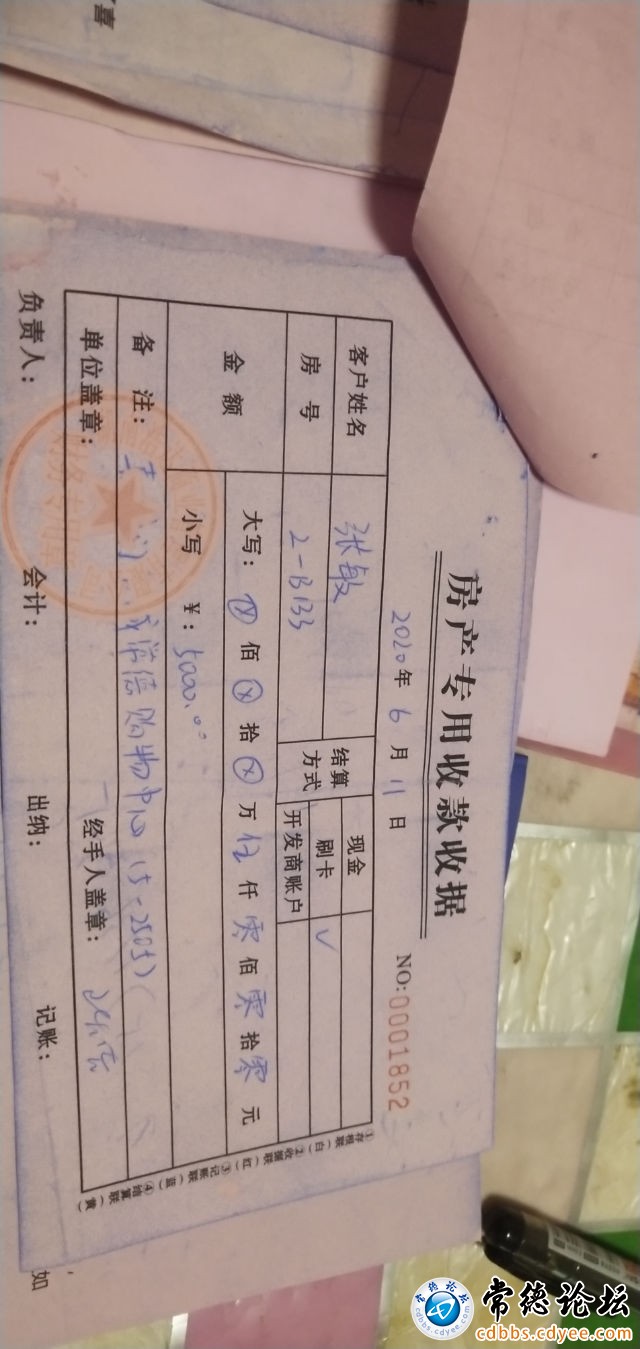 喜
房产专用收款收据
2020年6月11日
NO:0001852
客户姓名 张敏 结算方式 现金
刷卡 √
房号 2-B133 开发商账户
金额 大写: ⊗佰⊗拾⊗万伍仟零佰零拾零元
小写 ¥: 5000.00
备注: 购物中心
单位盖章: 经手人盖章:
负责人: 会计: 出纳: 记账:
①存根联(白) ②收据联(红) ③记账联(蓝) ④结算联(黄)
如
常德论坛
cdbbs.cdyee.com